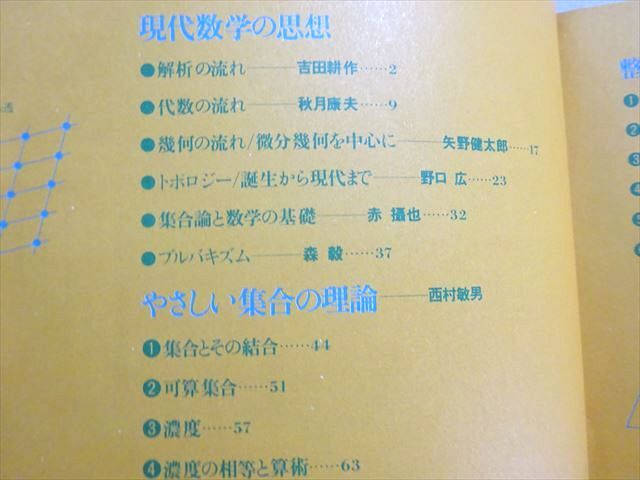 現代数学の思想
●解析の流れ――吉田耕作……2
●代数の流れ――秋月康夫……9
●幾何の流れ/微分幾何を中心に――矢野健太郎……17
●トポロジー/誕生から現代まで――野口 広……23
●集合論と数学の基礎――赤 攝也……32
●ブルバキズム――森 毅……37
やさしい集合の理論――西村敏男
❶集合とその結合……44
❷可算集合……51
❸濃度……57
❹濃度の相等と算術……63
透
整
❶
❷
❸